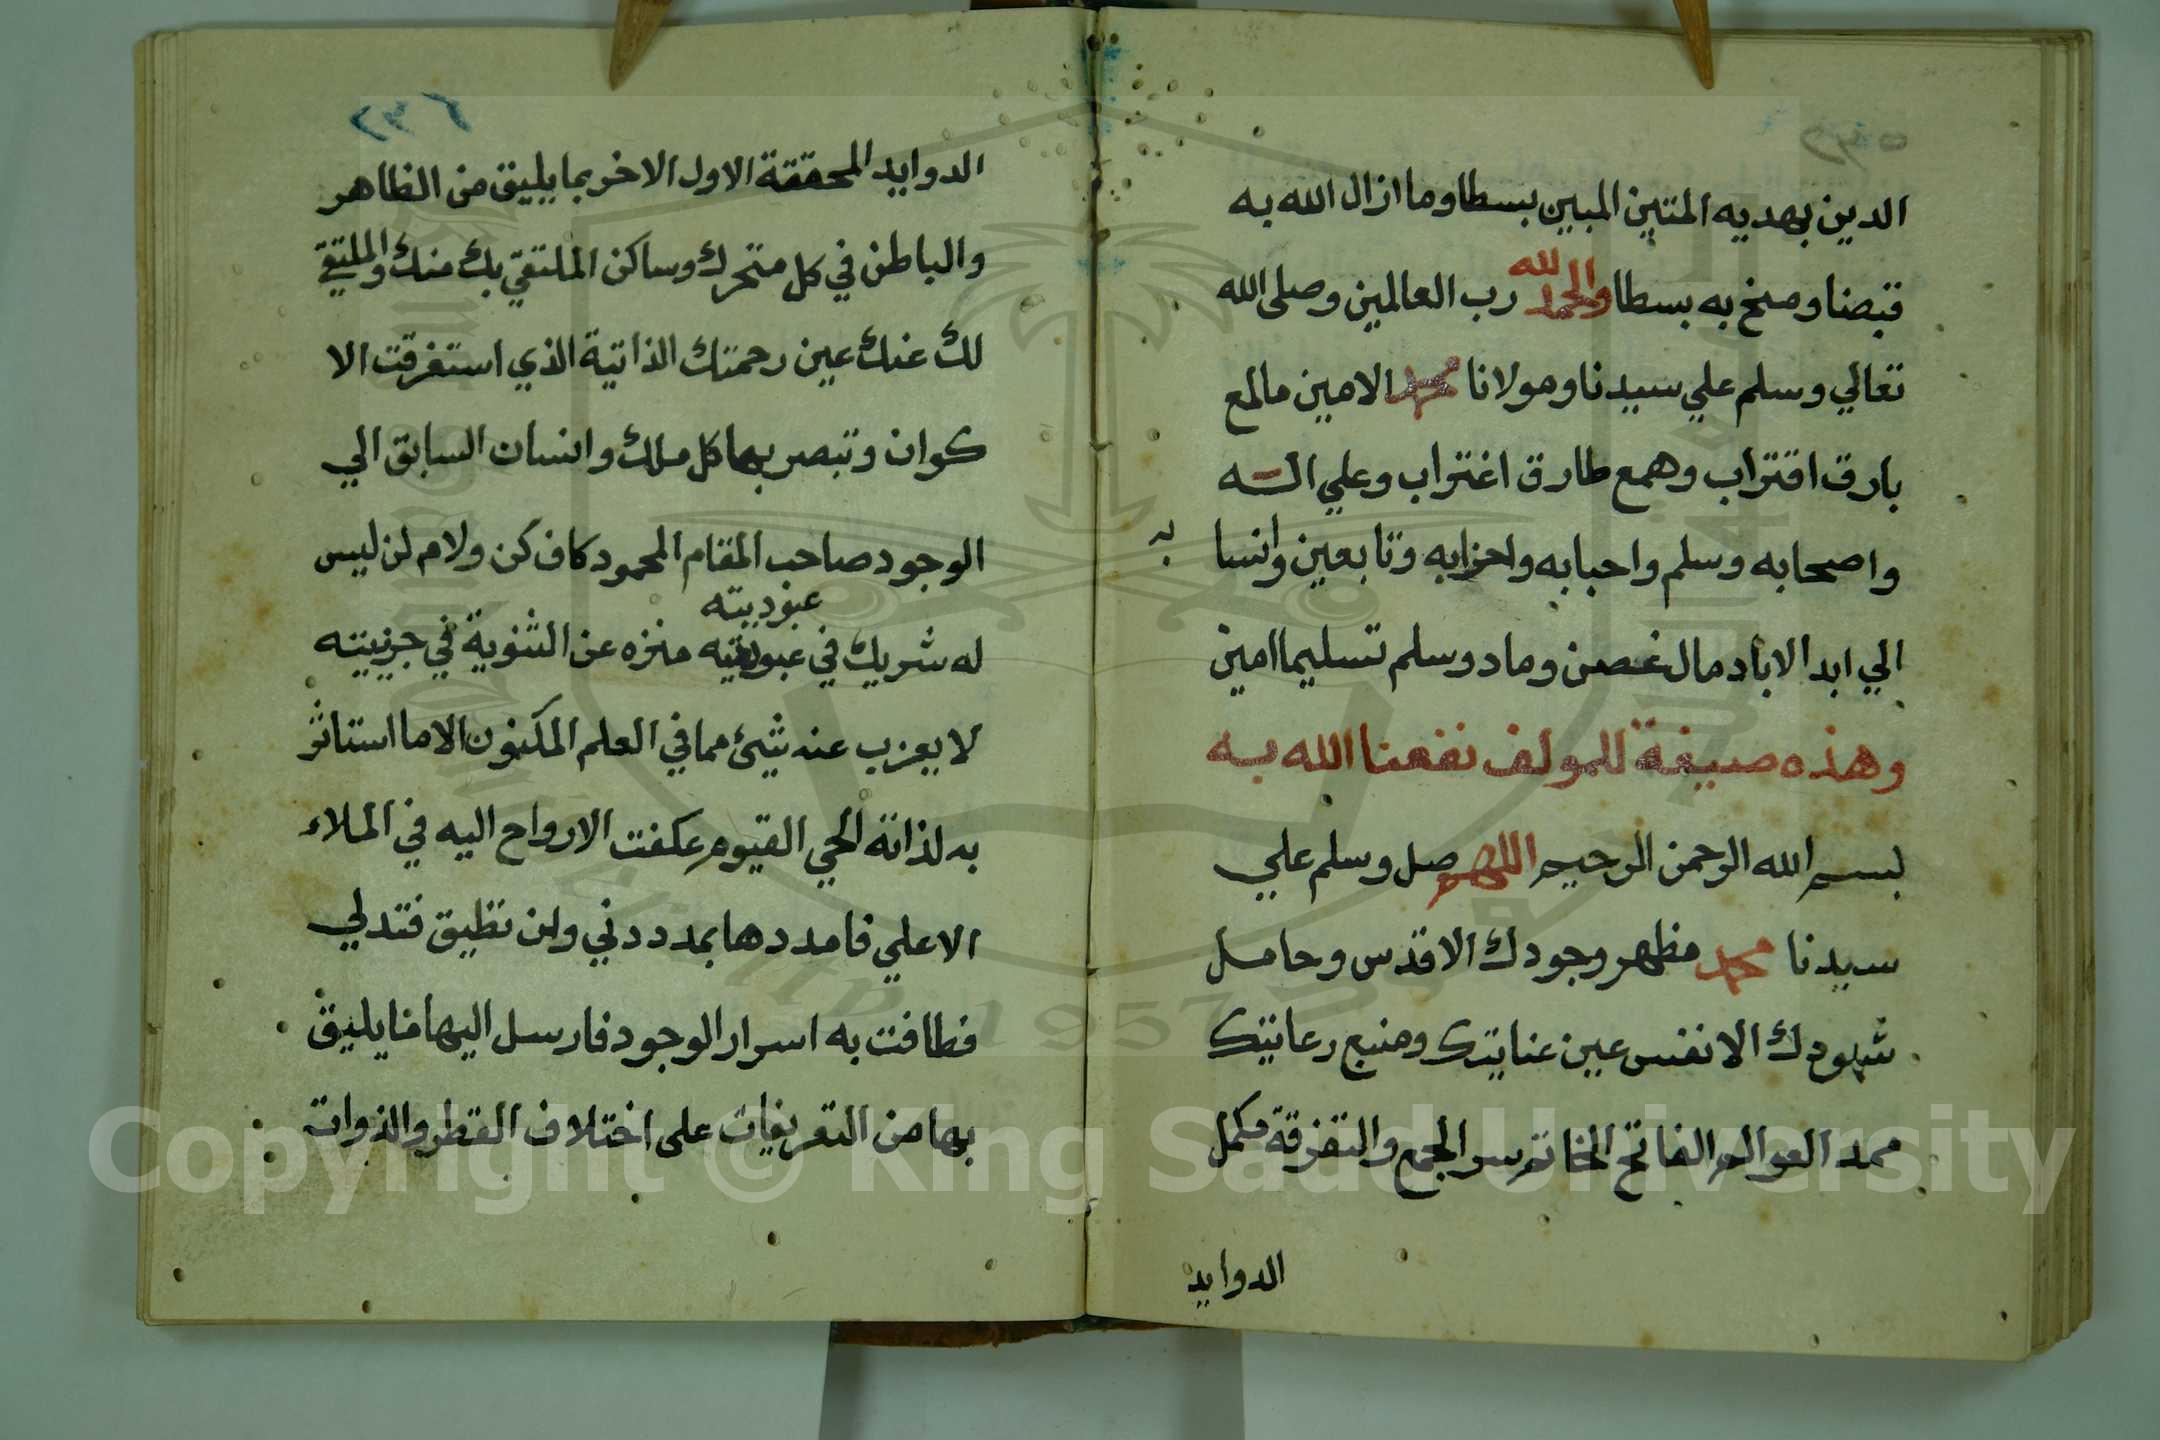 الدين بهديه المتين المبين بسطا وما ازال الله به
قبضا ومنح به بسطا والحمد لله رب العالمين وصلى الله
تعالي وسلم علي سيدنا ومولانا محمد الامين ما لمع
بارق اقتراب وهمع طارق اغتراب وعلي اله
واصحابه وسلم واحبابه واحزابه وتابعين وانسابه
الي ابد الاباد ما مال غصن وماد وسلم تسليما امين
وهذه صيغة للمولف نفعنا الله به
بسم الله الرحمن الرحيم اللهم صل وسلم علي
سيدنا محمد مظهر وجودك الاقدس وحامل
شهودك الانفس عين عنايتك ومنبع رعايتك
ممد العوالم الفاتح الخاتم سر الجمع والتفرقة مكمل
الدوايد
الدوايد المحققة الاول الاخر بما يليق من الظاهر
والباطن في كل متحرك وساكن الملتقي بك منك والملتقي
لك عنك عين رحمتك الذاتية الذي استغرقت الا
كوان وتبصر بها كل ملك وانسان السابق الي
الوجود صاحب المقام المحمود كاف كن ولام لن ليس
عبوديته
له شريك في منزه عن الثنوية في جزييته
لا يعزب عنه شيئ مما في العلم المكنون الا ما استاثر
به لذاته الحي القيوم عكفت الارواح اليه في الملاء
الاعلي فامددها بمدد دني ولن تطيق فتدلي
فطافت به اسرار الوجود فارسل اليها ما يليق
بها من التعريفات على اختلاف الفطر والذوات
Copyright © King Saud University
1957